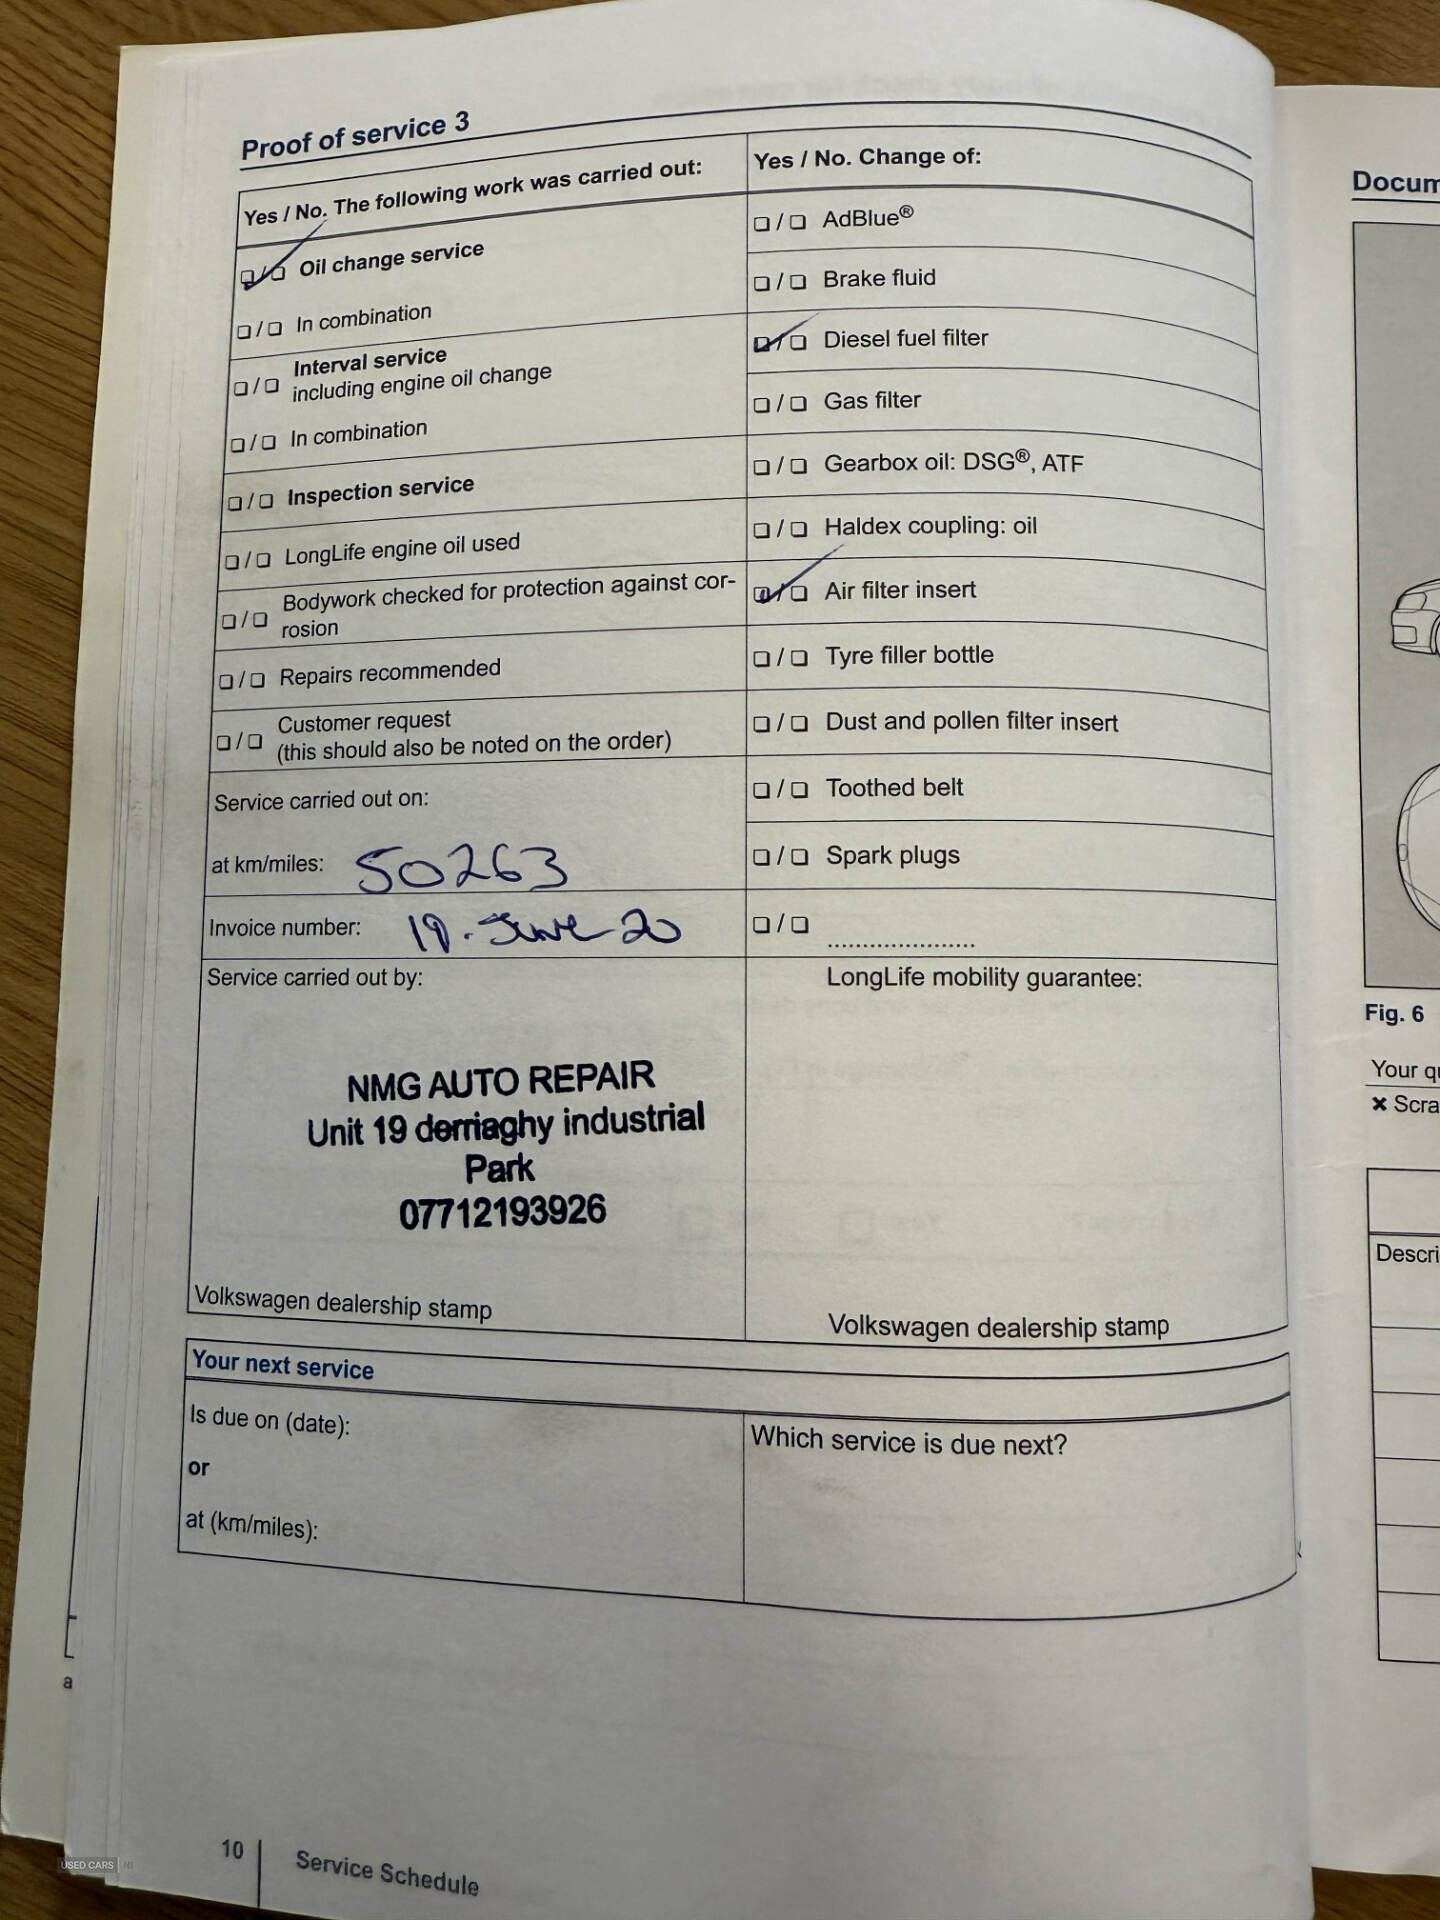 Proof of service 3
Yes / No. The following work was carried out:
❑ / ❑ Oil change service
❑ / ❑ In combination
❑ / ❑ Interval service
including engine oil change
❑ / ❑ In combination
❑ / ❑ Inspection service
❑ / ❑ LongLife engine oil used
❑ / ❑ Bodywork checked for protection against cor-
rosion
❑ / ❑ Repairs recommended
❑ / ❑ Customer request
(this should also be noted on the order)
Service carried out on:
at km/miles: 50263
Invoice number: 19. June 20
Service carried out by:
NMG AUTO REPAIR
Unit 19 derriaghy industrial
Park
07712193926
Volkswagen dealership stamp
Yes / No. Change of:
❑ / ❑ AdBlue®
❑ / ❑ Brake fluid
❑ / ❑ Diesel fuel filter
❑ / ❑ Gas filter
❑ / ❑ Gearbox oil: DSG®, ATF
❑ / ❑ Haldex coupling: oil
❑ / ❑ Air filter insert
❑ / ❑ Tyre filler bottle
❑ / ❑ Dust and pollen filter insert
❑ / ❑ Toothed belt
❑ / ❑ Spark plugs
❑ / ❑ .....................
LongLife mobility guarantee:
Volkswagen dealership stamp
Your next service
Is due on (date):
or
at (km/miles):
Which service is due next?
10
Service Schedule
USED CARS NI
a
Docum
Fig. 6
Your qu
✖ Scra
Descri